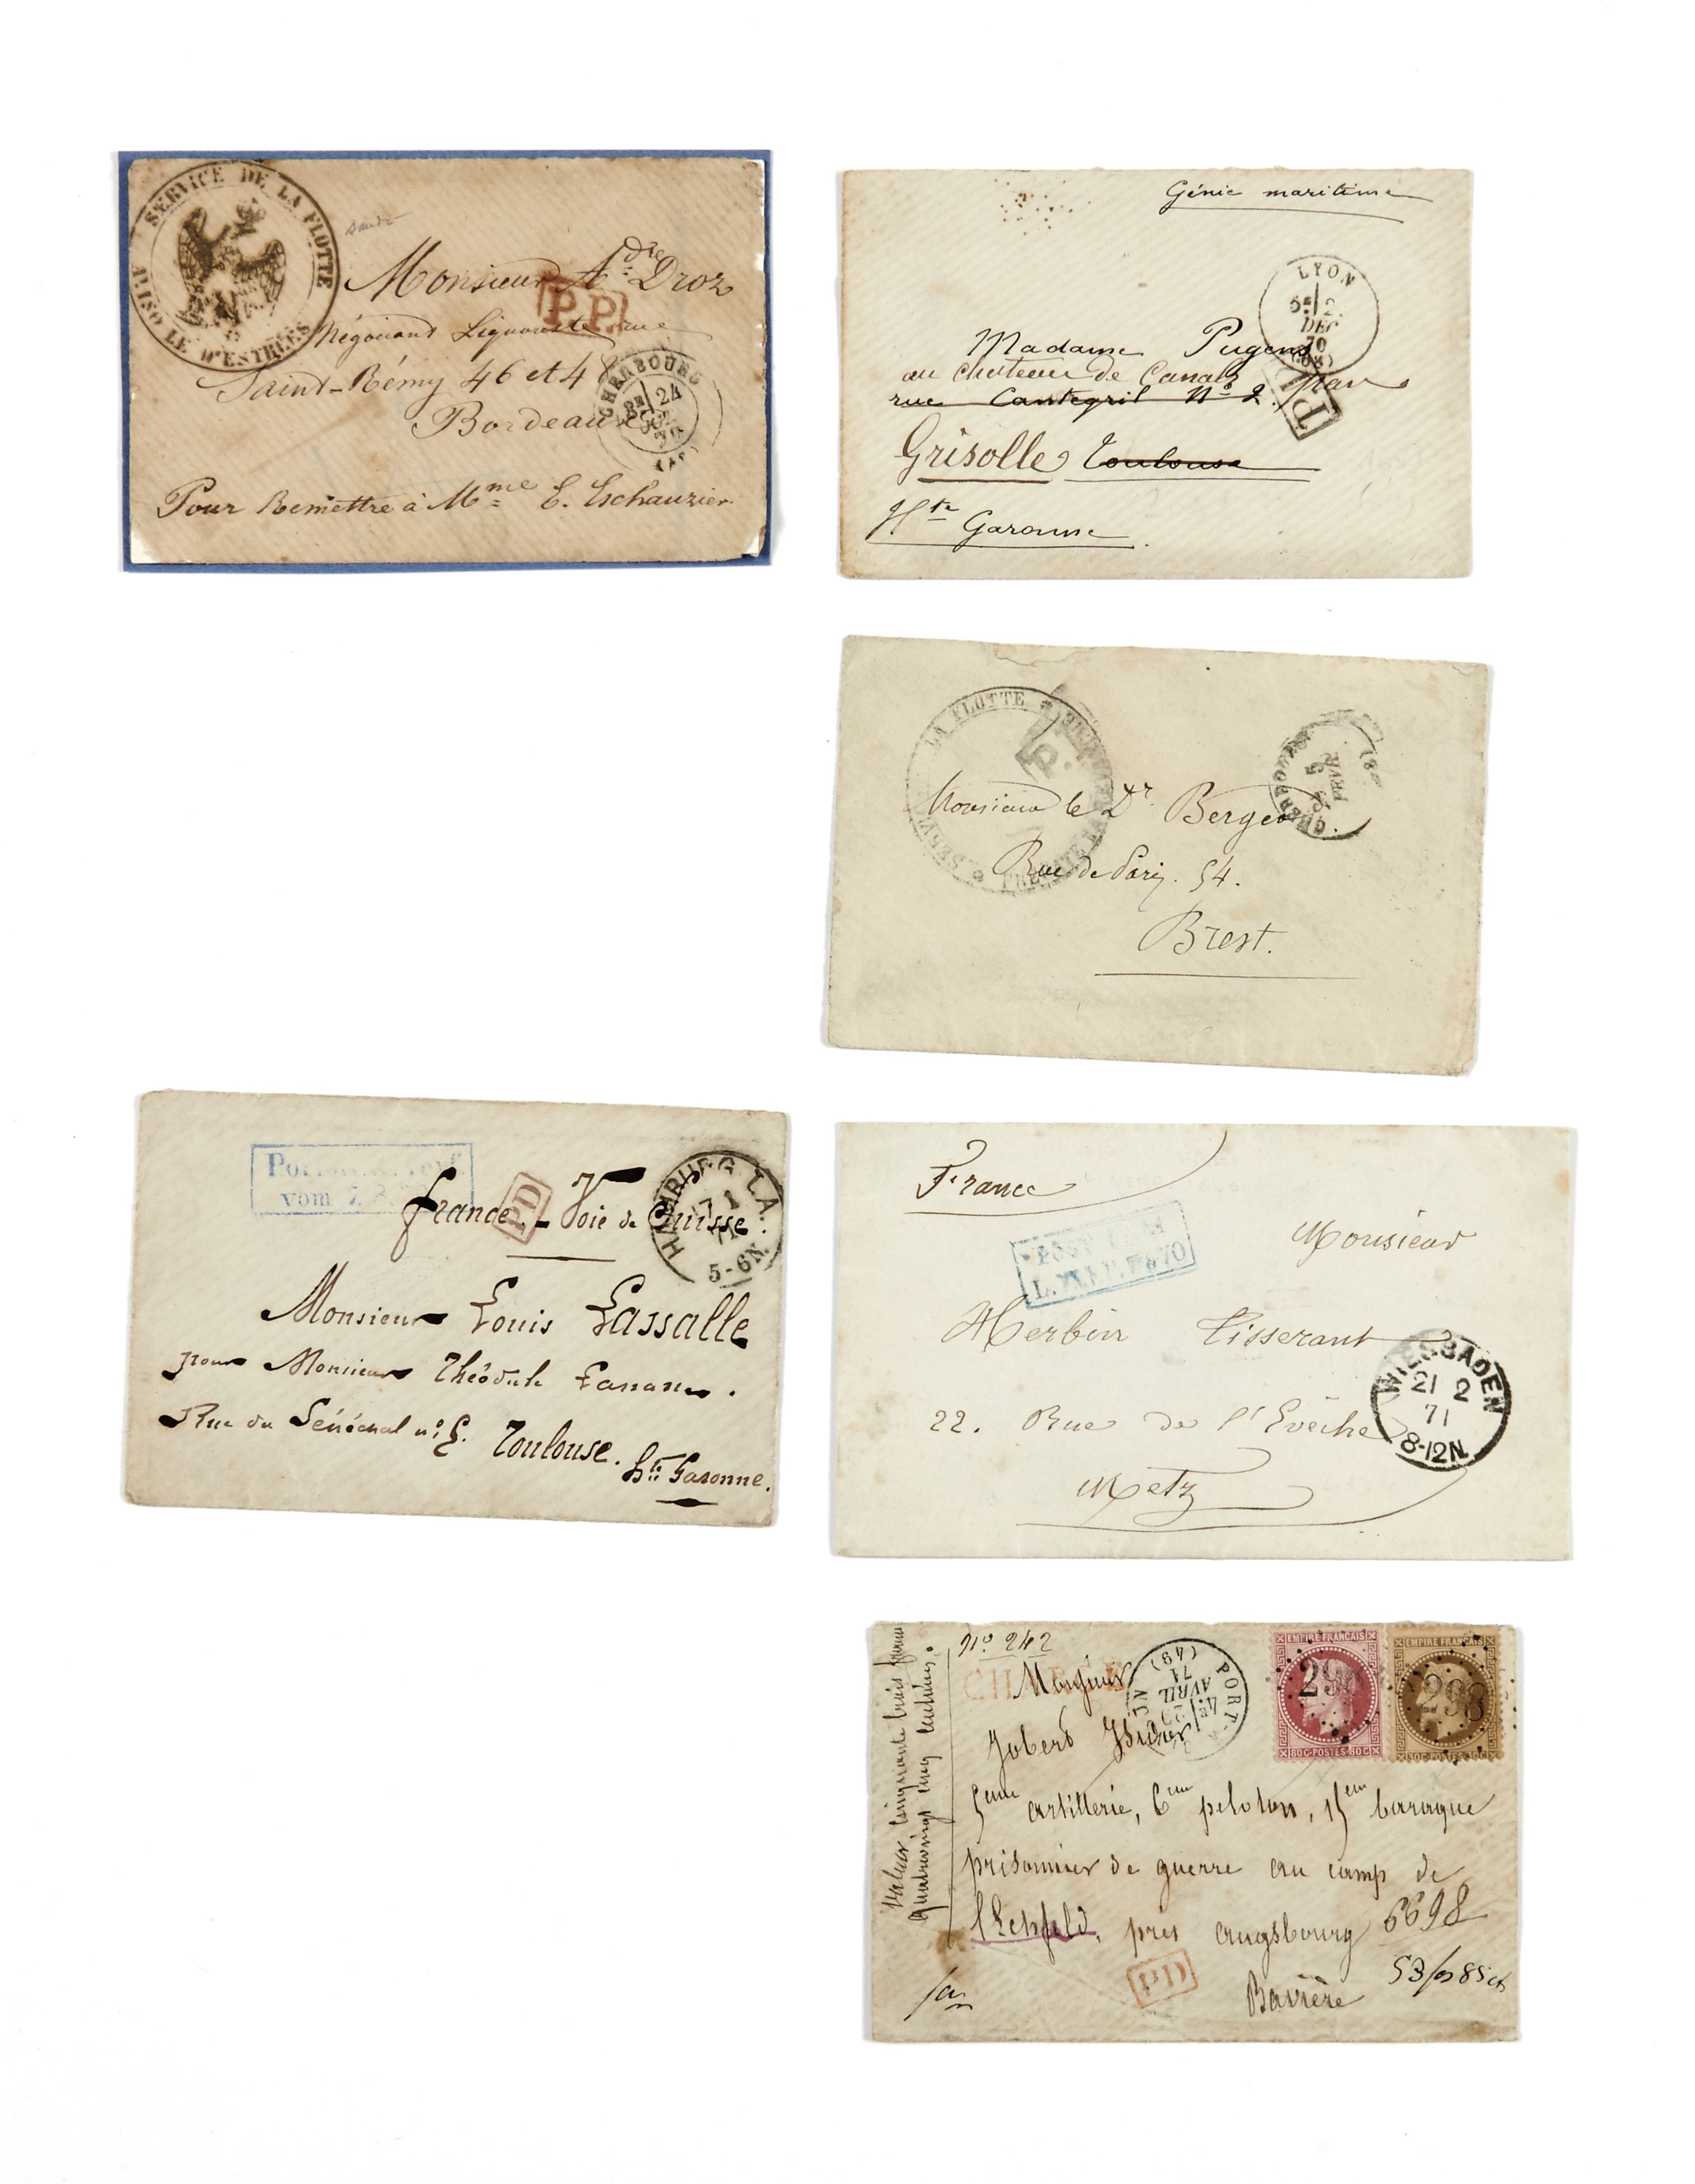 SERVICE DE LA FLOTTE
AVISO LE D'ESTRÉES
Monsieur A.dre Droz
P.P.
Négociant Liquoriste rue
Saint-Rémy 46 et 48
CHERBOURG
24
OCT
70
Bordeaux
Pour Remettre à Mme E. Eschauzier
Génie maritime
LYON
5E/2
DEC
70
(68)
Madame Pugens
au chateau de Canals
rue Cantegril No 2.
P
Grisolle Toulouse
Hte Garonne
LA FLOTTE
P.
CHERBOURG
FEVR
Monsieur le Dr. Berger
Rue de Paris. 54.
Brest.
vom
PD
France. - Voie de Suisse.
HAMBURG I.A.
17 1
71
5-6N.
Monsieur Louis Lassalle
pour Monsieur Théodule
Rue du Sénéchal no
Toulouse.
Hte Garonne.
France
Monsieur
Herbin Tisserant
WIESBADEN
21 2
71
8-12N.
22. Rue de l'Evêche
Metz
No 242
CHARGÉ
Monsieur
PORT-
4E
AVRIL
71
(49)
EMPIRE FRANÇAIS
80C·POSTES·80C
EMPIRE FRANÇAIS
30C·POSTES·30C
298
Jobert
5eme artillerie, 6eme peloton, 15eme baraque
prisonnier de guerre au camp de
Lechfeld, près Augsbourg
6698
53/85
PD
Bavière
Valeur cinquante trois francs
quatrevingt cinq centimes.